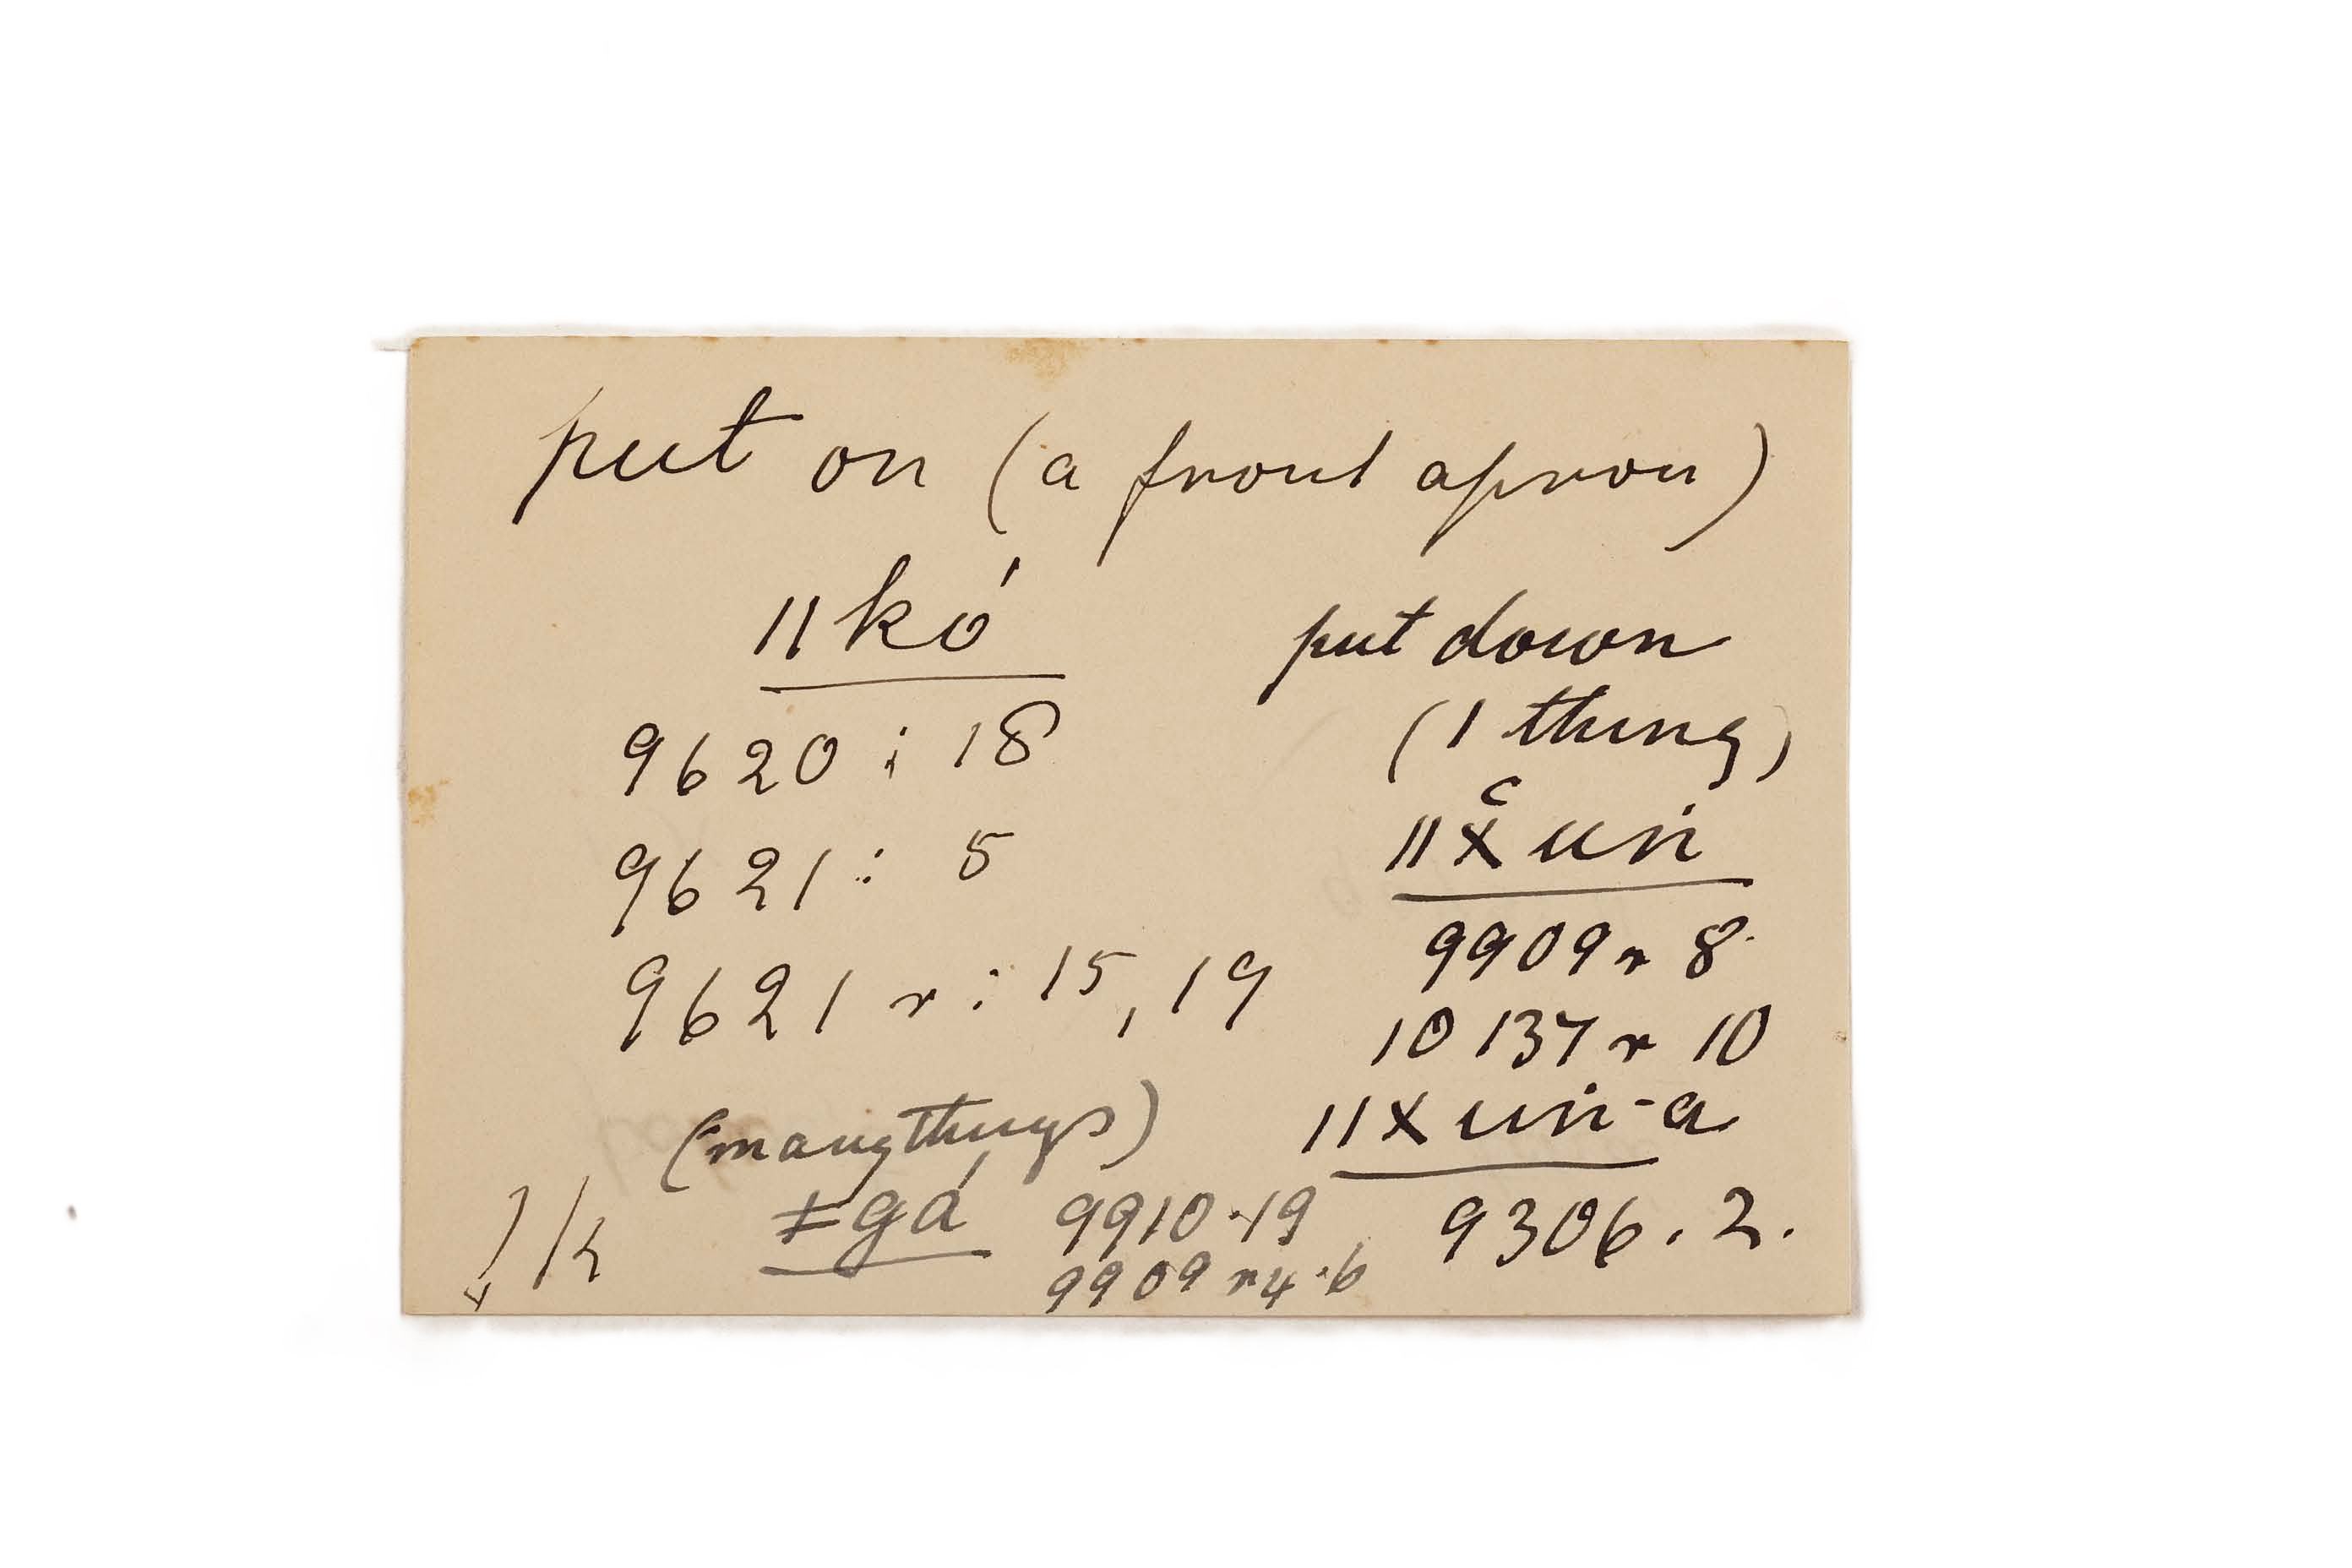 put on (a front apron)
ǁkó
9620 : 18
9621 : 5
9621 r : 15, 19
(many things)
ǂgá 9910.19
9909 r 4.6
put down
(1 thing)
ǁx̔uṅ
9909 r 8.
10137 r 10
ǁxuṅ-a
9306.2.